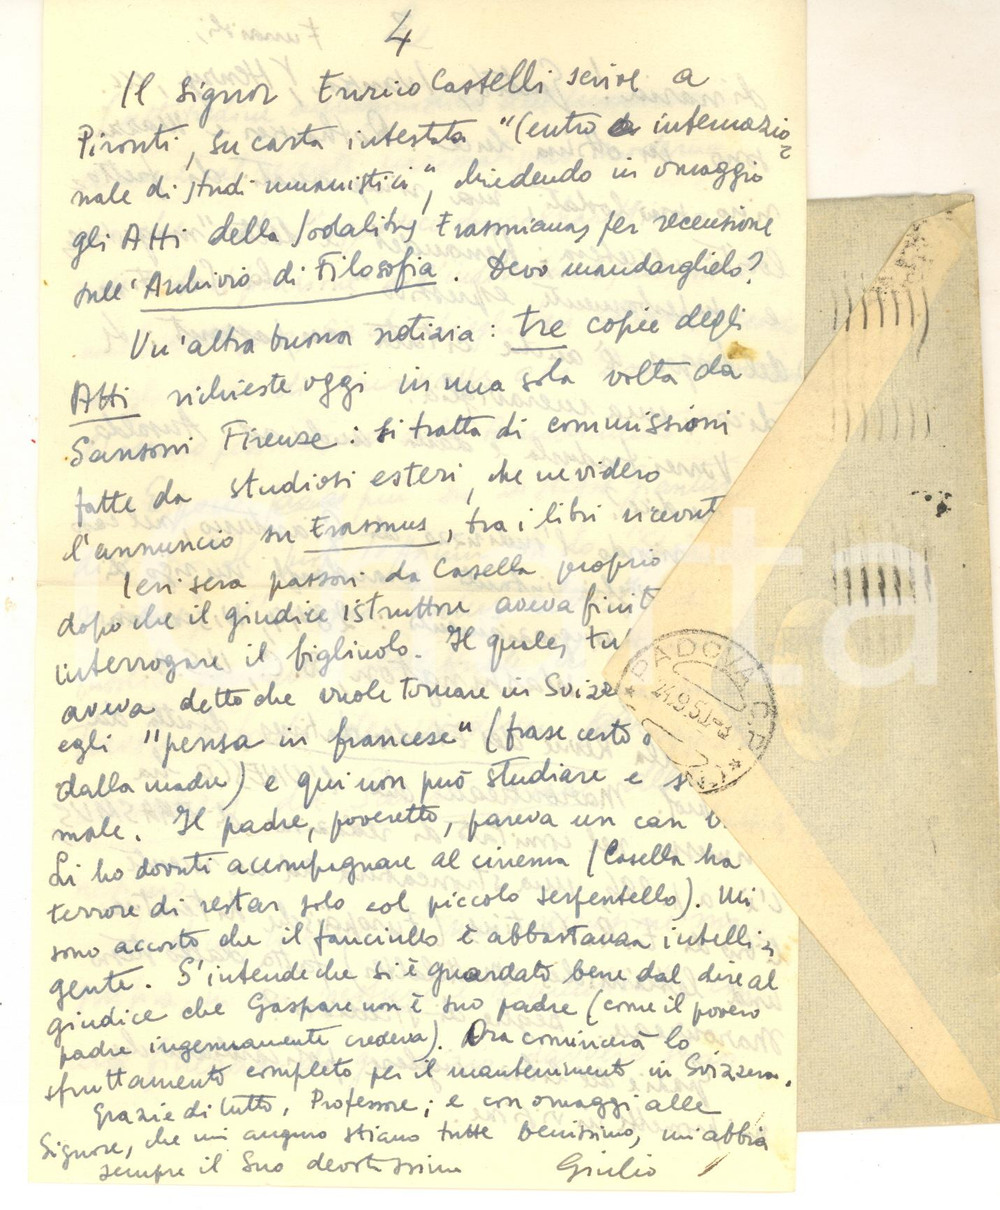 4
Il signor Enrico Castelli scrive a
Pironti, su carta intestata "Centro di internazio=
nale di studi umanistici", chiedendo in omaggio
gli Atti della Sodalitas Erasmiana, per recensione
sull'Archivio di Filosofia. Devo mandarglielo?
Un'altra buona notizia: tre copie degli
Atti richieste oggi in una sola volta da
Sansoni Firenze: si tratta di commissioni
fatte da studiosi esteri, che ne videro
l'annuncio su Erasmus, tra i libri ricevut
Ieri sera passai da Casella proprio
dopo che il giudice istruttore aveva finit
interrogare il figliuolo. Il quale,
aveva detto che vuole tornare in Svizz
egli "pensa in francese" (frase certo
dalla madre) e qui non può studiare e s
male. Il padre, poveretto, pareva un can
Li ho dovuti accompagnare al cinema (Casella ha
terrore di restar solo col piccolo serpentello). Mi
sono accorto che il fanciullo è abbastanza intelli=
gente. S'intende che si è guardato bene dal dire al
giudice che Gaspare non è suo padre (come il povero
padre ingenuamente credeva). Ora comincerà lo
sfruttamento completo per il mantenimento in Svizzera.
Grazie di tutto, Professore; e con omaggi alle
Signore, che mi auguro stiano tutte benissimo, mi abbia
sempre il Suo devotissimo Giulio
PADOVA